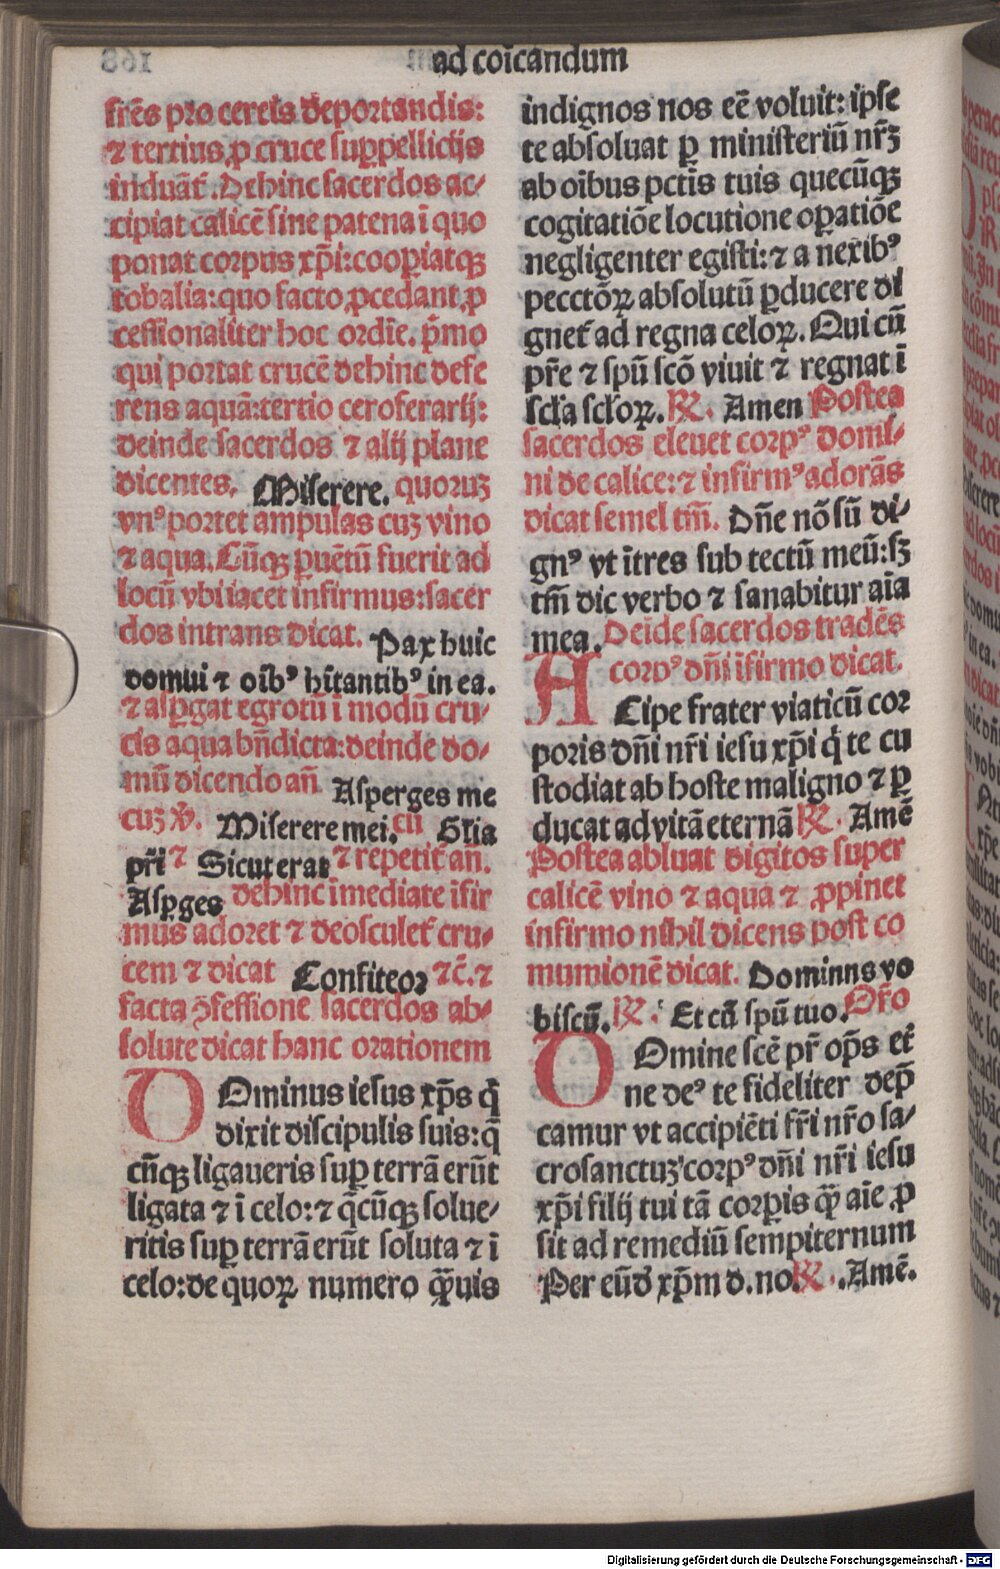 ad coīcandum
frēs pro cereis deportandis:
⁊ tertius ꝓ cruce suppellicijs
induāt̄. Dehinc sacerdos ac/
cipiat calicē sine patena ī quo
ponat corpus xp̄i: cooꝑiatqꝫ
tobalia: quo facto ꝓcedant ꝓ
cessionaliter hoc ordīe. p̄mo
qui portat crucē dehinc defe
rens aquā: tertio ceroferarij:
deinde sacerdos ⁊ alij plane
dicentes. Miserere. quoruꝫ
vnꝰ portet ampulas cuꝫ vino
⁊ aqua. Cūqꝫ ꝑuētū fuerit ad
locū vbi iacet infirmus: sacer
dos intrans dicat. Pax huic
domui ⁊ oībꝰ hītantibꝰ in ea.
⁊ asꝑgat egrotū ī modū cru/
cis aqua bn̄dicta: deinde do/
mū dicendo an̄. Asperges me
cuꝫ v̄. Miserere mei. cū Glīa
pr̄i ⁊ Sicut erat ⁊ repetit̄ an̄.
Asꝑges dehinc īmediate īfir
mus adoret ⁊ deosculet̄ cru/
cem ⁊ dicat Confiteor ⁊c̄. ⁊
facta ꝯfessione sacerdos ab/
solute dicat hanc orationem
DOminus iesus xp̄s q̄
dixit discipulis suis: q̄
cūqꝫ ligaueris suꝑ terrā erūt
ligata ⁊ ī celo: ⁊ q̄cūqꝫ solue/
ritis suꝑ terrā erūt soluta ⁊ ī
celo: de quoꝝ numero q̄uis
indignos nos eē voluit: ipse
te absoluat ꝑ ministeriū nr̄ꝫ
ab oībus pctīs tuis quecūqꝫ
cogitatiōe locutione oꝑatiōe
negligenter egisti: ⁊ a nexibꝰ
pecctōꝝ absolutū ꝑducere di
gnet̄ ad regna celoꝝ. Qui cū
pr̄e ⁊ spū scō viuit ⁊ regnat ī
scl̄a scl̄oꝝ. ℟. Amen Postea
sacerdos eleuet corpꝰ domi/
ni de calice: ⁊ infirmꝰ adorās
dicat semel tm̄. Dn̄e nō sū di/
gnꝰ vt ītres sub tectū meū: sꝫ
tm̄ dic verbo ⁊ sanabitur aīa
mea. Deīde sacerdos tradēs
corpꝰ dn̄i īfirmo dicat.
ACcipe frater viaticū cor
poris dn̄i nr̄i iesu xp̄i q̇ te cu
stodiat ab hoste maligno ⁊ ꝑ
ducat ad vitā eternā ℟. Amē
Postea abluat digitos super
calicē vino ⁊ aqua ⁊ ꝓpinet
infirmo nihil dicens post co
mumionē dicat. Dominns vo
biscū. ℟. Et cū spū tuo. Or̄o
DOmine scē pr̄ op̄s et̄
ne deꝰ te fideliter dep̄
camur vt accipiēti fr̄i nr̄o sa/
crosanctuꝫ corpꝰ dn̄i nr̄i iesu
xp̄i filij tui tā corꝑis q̄ aīe ꝓ
sit ad remediū sempiternum
Per eūd xp̄m d. no. ℟. Amē.
Digitalisierung gefördert durch die Deutsche Forschungsgemeinschaft - DFG